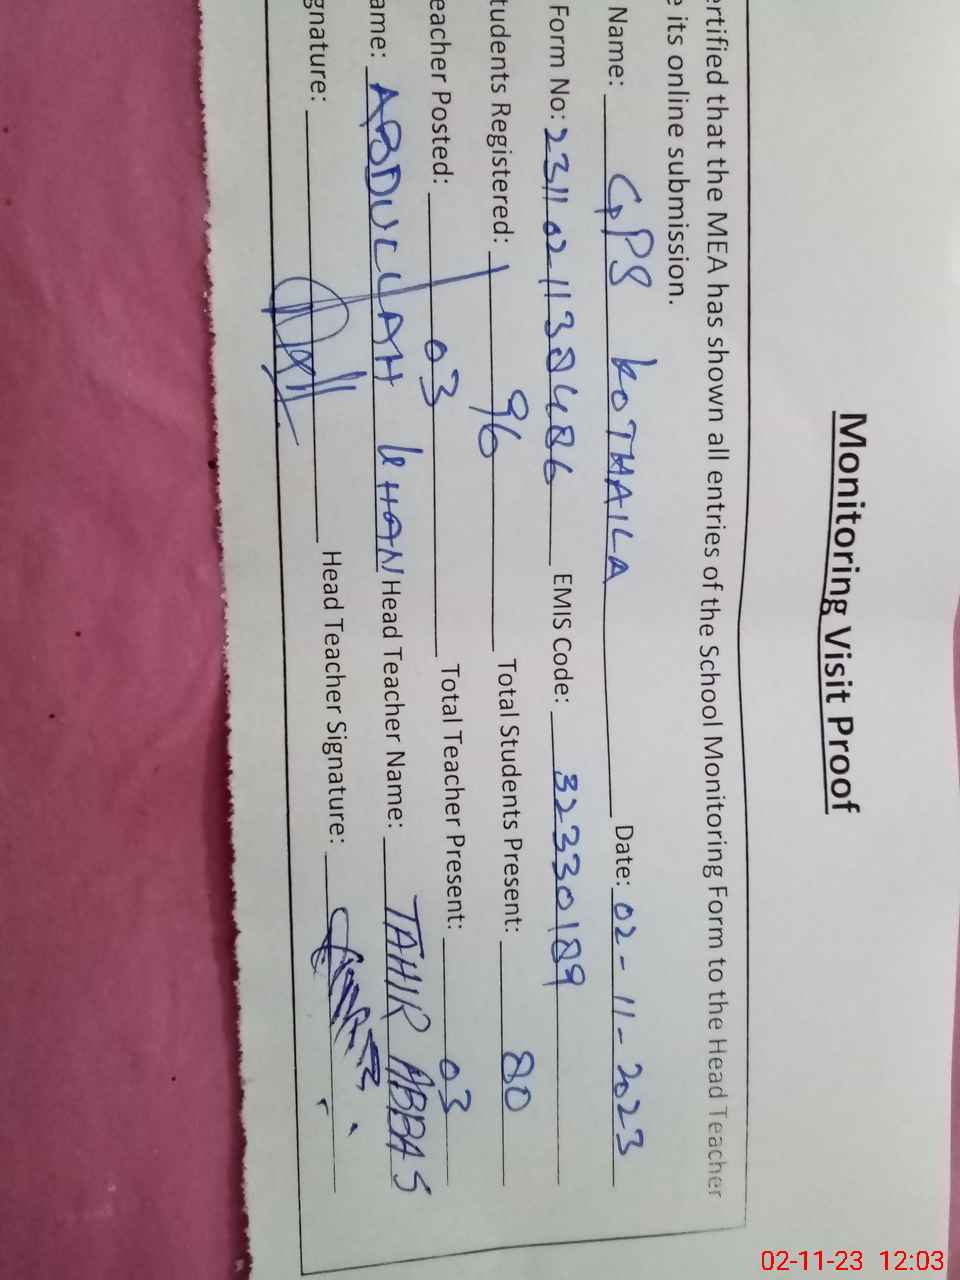 Monitoring Visit Proof
ertified that the MEA has shown all entries of the School Monitoring Form to the Head Teacher
e its online submission.
Name: GPS KOTHAILA Date: 02-11-2023
Form No: 2311021138486 EMIS Code: 32330189
tudents Registered: 96 Total Students Present: 80
eacher Posted: 03 Total Teacher Present: 03
ame: ABDULLAH KHAN Head Teacher Name: TAHIR ABBAS
gnature: Head Teacher Signature:
02-11-23 12:03